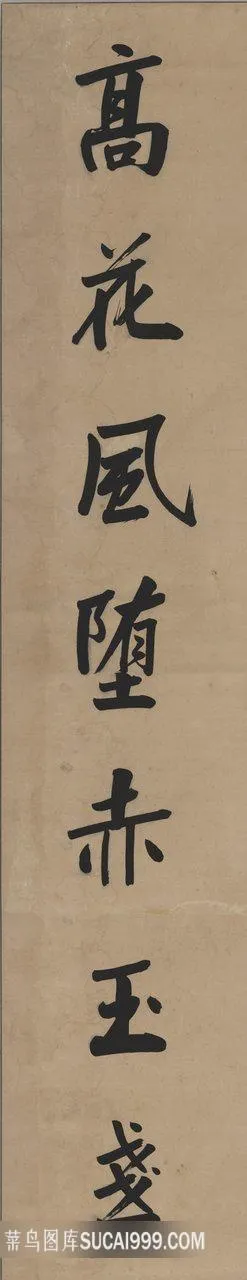 高花風堕赤玉盏
菜鸟图库SUCAI999.COM